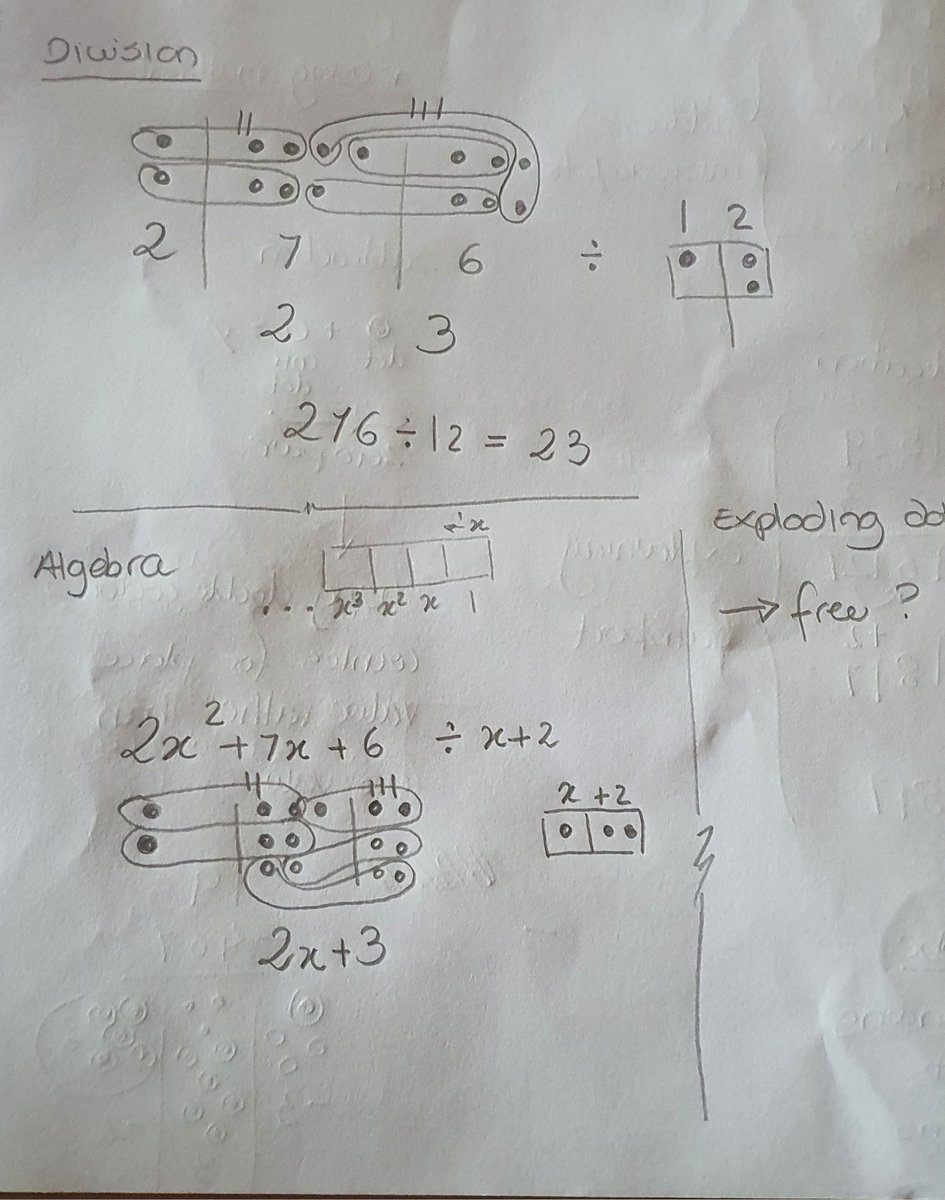 Division
2 7 6 ÷ 1 2
2 3
276 ÷ 12 = 23
Algebra
← x
... x³ x² x 1
2x² + 7x + 6 ÷ x+2
x +2
2x+3
Exploding
→ free ?